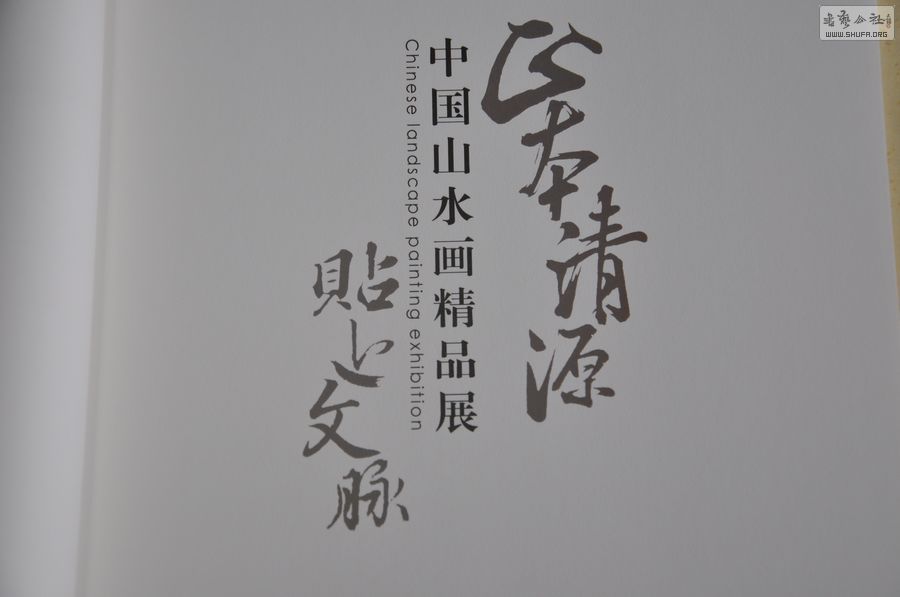 正本清源
中国山水画精品展
Chinese landscape painting exhibition
貼上文脉
書藝公社
WWW.SHUFA.ORG